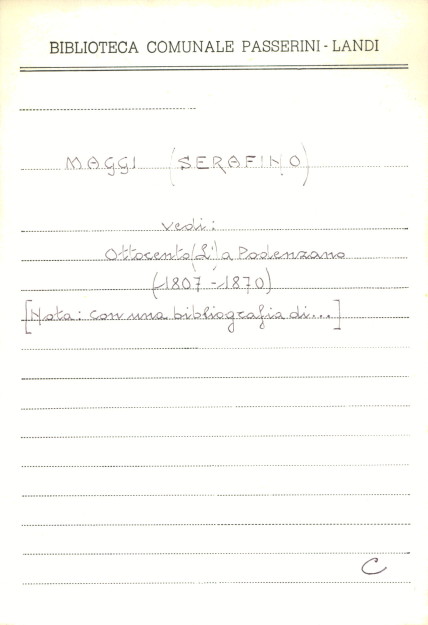 BIBLIOTECA COMUNALE PASSERINI - LANDI
MAGGI (SERAFINO)
vedi:
Ottocento (L') a Podenzano
(1807 - 1870)
[Nota: con una bibliografia di...]
C